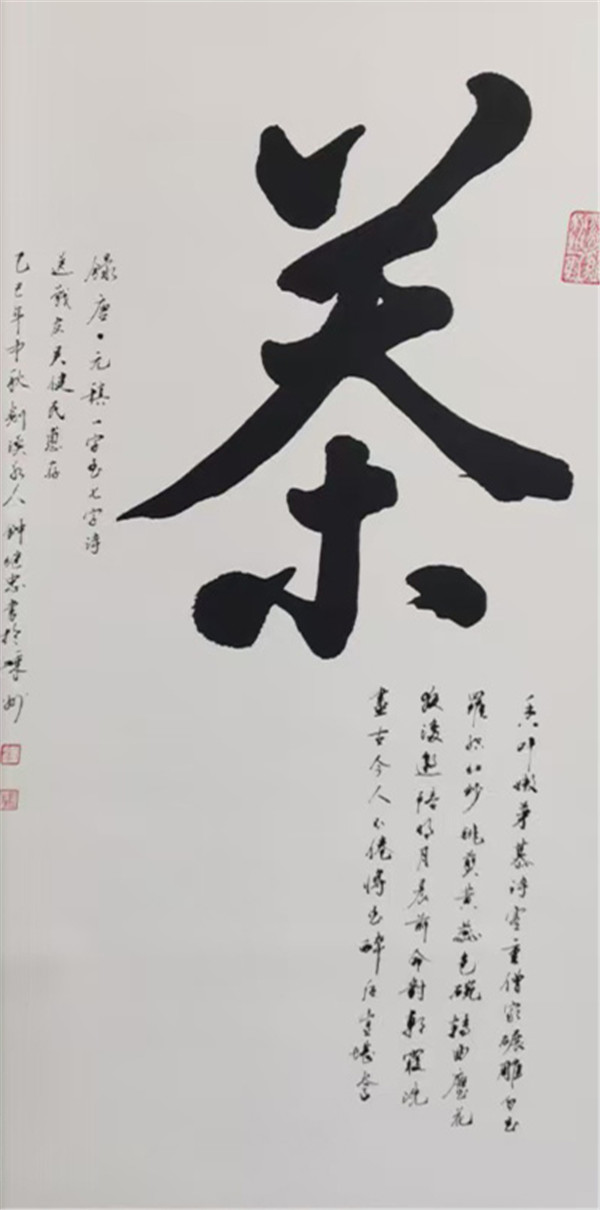 茶
香叶嫩芽慕诗客重僧家碾雕白玉
羅织红纱铫煎黄蕊色碗转曲塵花
夜後邀陪明月晨前命对朝霞洗
盡古今人不倦将知醉后岂堪夸
録唐·元稹一字至七字诗
送战友吴健民惠存
乙巳年中秋剑溪 人钟继忠書於 州